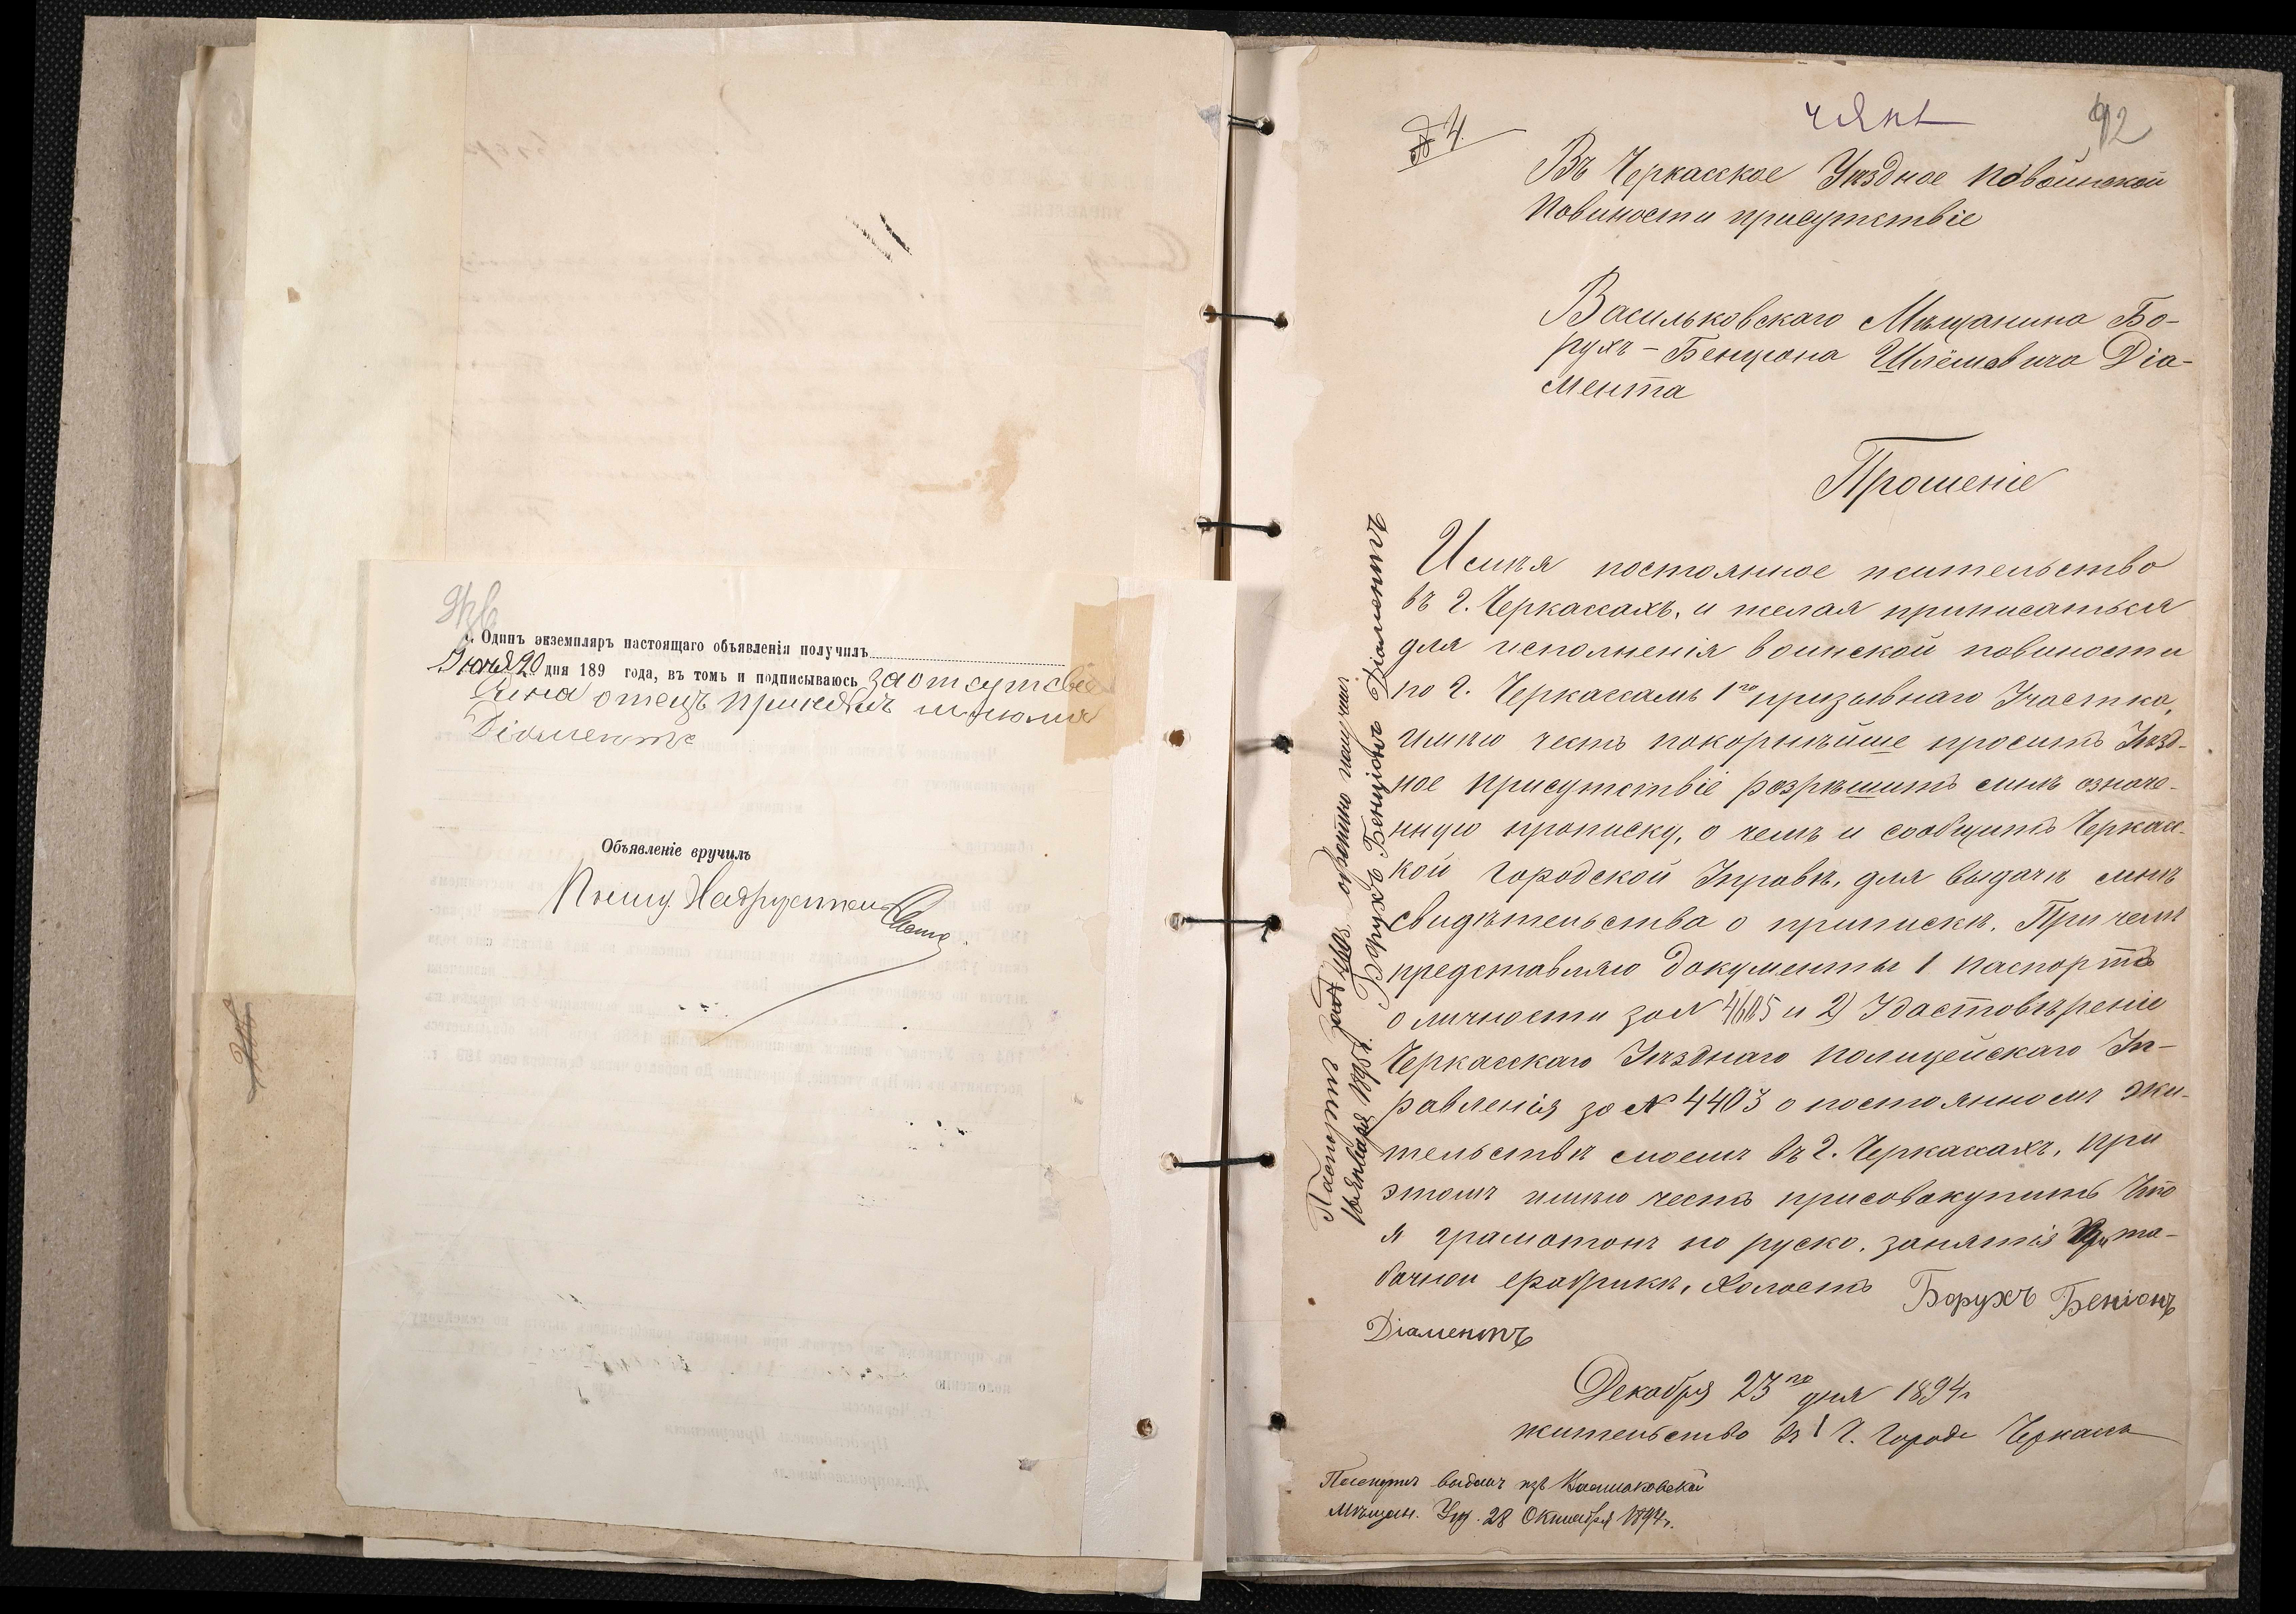 1. Одинъ экземпляръ настоящаго объявленія получилъ
Іюня 20 дня 189 года, въ томъ и подписываюсь за отсутсвіе
Сина отецъ принялъ
Діаментъ
Объявленіе вручилъ
№ 4.
92
Въ Черкасское Уѣздное по воинской
Повиности присутствіе
Васильковскаго Мѣщанина Бо-
рухъ-Бенціона Шлёмовича Діа-
мента
Прошеніе
Имѣя постоянное жительство
въ г. Черкассахъ, и желая приписаться
для исполненія воинской повиности
по г. Черкассамъ 1го призывнаго Участка,
имѣю честь покорнѣйше просить Уѣзд-
ное присутствіе розрѣшить мнѣ означе-
нную прописку, о чемъ и сообщить Черкасс-
кой Городской Управѣ, для выдачи мнѣ
свидѣтельства о припискѣ. При чемъ
представляю документы 1 паспортъ
о личности за № 4605 и 2) Удастовѣреніе
Черкасскаго Уѣзднаго полицейскаго Уп-
равленія за № 4403 о постоянномъ жи-
тельствѣ моемъ въ г. Черкассахъ, при
этомъ имѣю честь присовокупить что
я грамотонъ по руско, занятія при та-
бачнои фабрики, холостъ Борухъ Беніонъ
Діаментъ
Декабря 23го дня 1894 г
жительство въ 1 ч. Городе Черкасъ
Паспортъ выданъ изъ Васильковской
Мѣщан. Упр. 28 Октября 1894 г.
Паспортъ за № 4605 обратно получилъ
10 Января 1895 г. Борухъ Бенціонъ Діаментъ